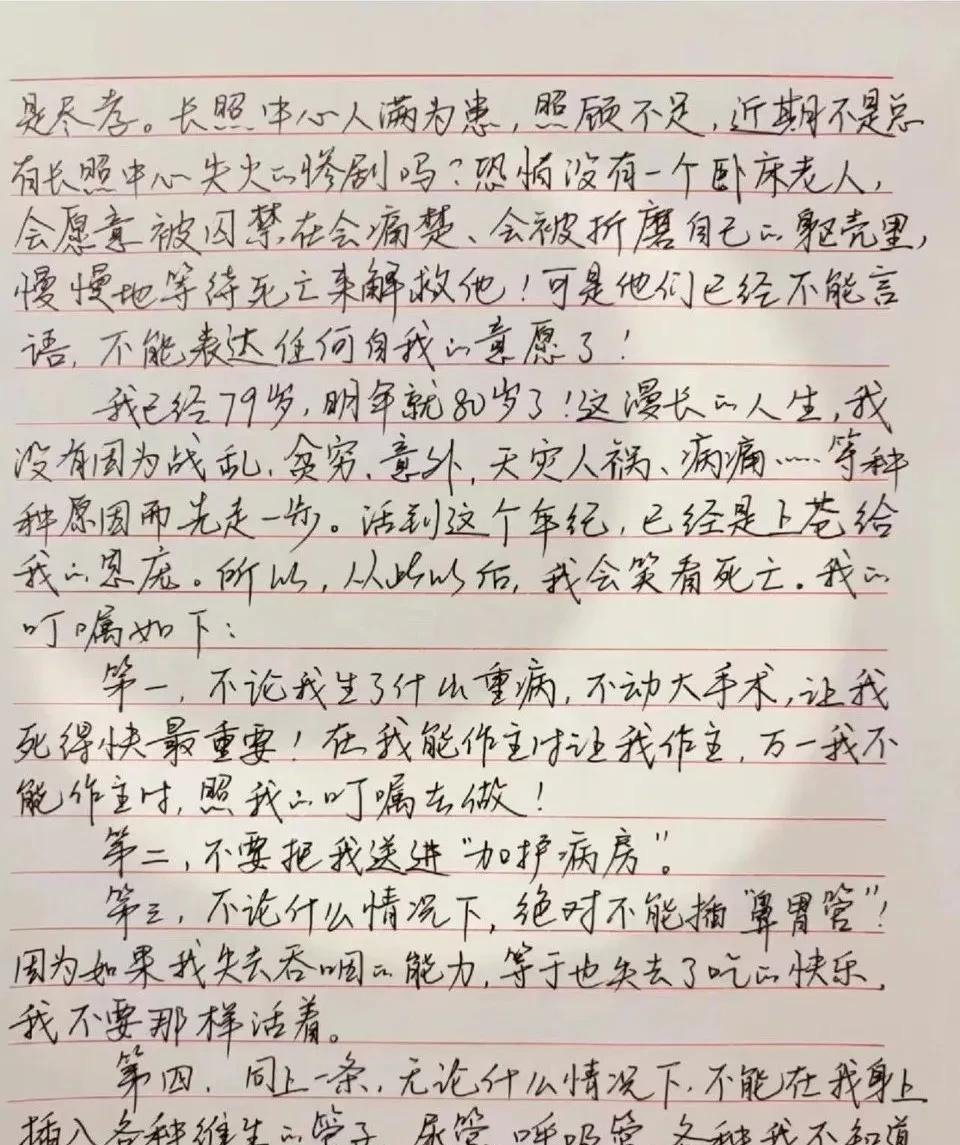 是尽孝。长照中心人满为患，照顾不足，近期不是总
有长照中心失火的惨剧吗？恐怕没有一个卧床老人，
会愿意被囚禁在会痛楚、会被折磨自己的躯壳里，
慢慢地等待死亡来解救他！可是他们已经不能言
语，不能表达任何自我的意愿了！
我已经79岁，明年就80岁了！这漫长的人生，我
没有因为战乱、贫穷、意外，天灾人祸、病痛……等种
种原因而先走一步。活到这个年纪，已经是上苍给
我的恩宠。所以，从此以后，我会笑看死亡。我的
叮嘱如下：
第一，不论我生了什么重病，不动大手术，让我
死得快最重要！在我能作主时让我作主，万一我不
能作主时，照我的叮嘱去做！
第二，不要把我送进“加护病房”。
第三，不论什么情况下，绝对不能插“鼻胃管”！
因为如果我失去吞咽的能力，等于也失去了吃的快乐，
我不要那样活着。
第四，同上一条，无论什么情况下，不能在我身上
插入各种维生的管子，尿管，呼吸管，各种我不知道